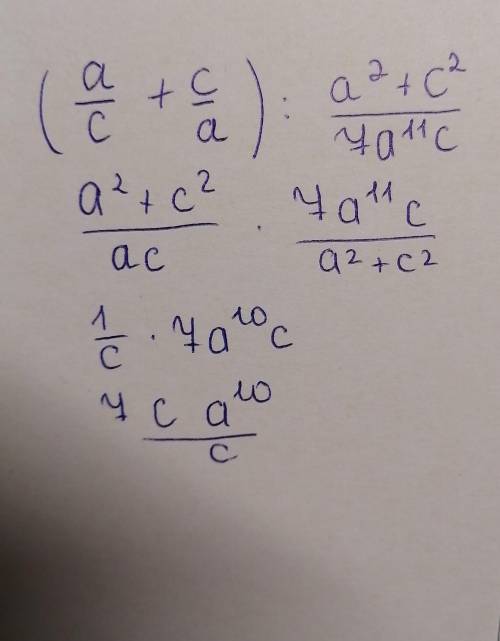 (a/c + c/a) : (a² + c²)/(7a¹¹c)
(a² + c²)/(ac) · (7a¹¹c)/(a² + c²)
1/c · 7a¹⁰c
7 (c a¹⁰)/c